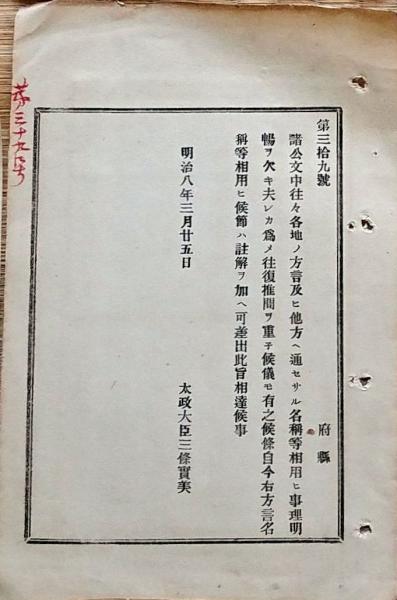 第三拾九號
府縣
諸公文中往々各地ノ方言及ヒ他方ヘ通セサル名稱等相用ヒ事理明
暢ヲ欠キ夫レカ爲メ往復推問ヲ重子候儀モ有之候條自今右方言名
稱等相用ヒ候節ハ註解ヲ加ヘ可差出此旨相達候事
明治八年三月廿五日
太政大臣三條實美
第三十九号